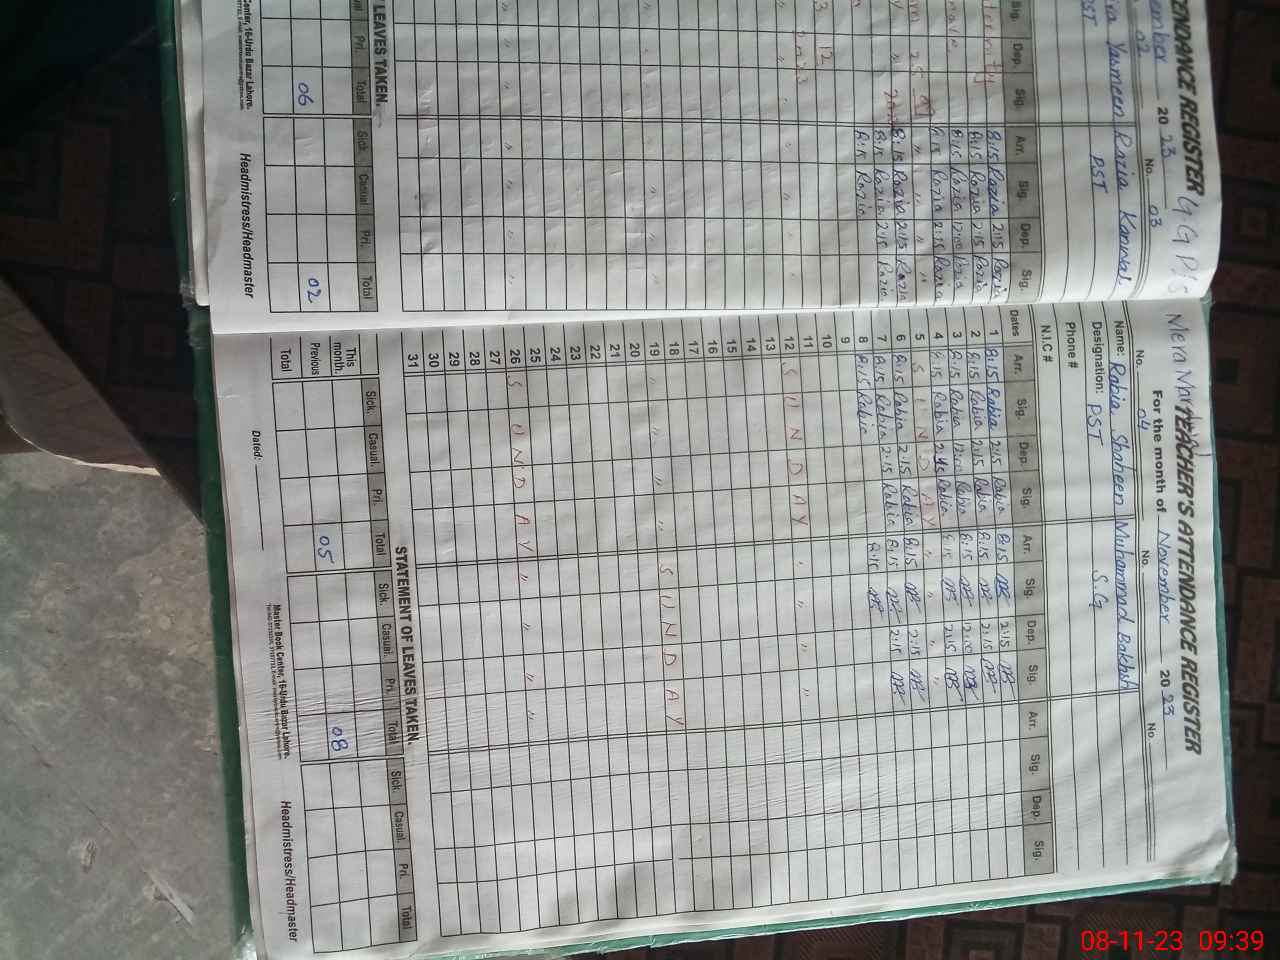 TENDANCE REGISTER G G P/S
ember 2023
02 No. 03
Yasmeen Razia Kanwal
PST PST
Sig. Dep. Sig. Arr. Sig. Dep. Sig.
8:15 Razia 2:15 Razia
8:15 Razia 2:15 Razia
8:15 Razia 12:00 Razia
8:15 Razia 2:15 Razia
8:15 Razia 2:15 Razia
8:15 Razia 2:15 Razia
8:15 Razia
LEAVES TAKEN.
Pri. Total Sick. Casual Pri. Total
06 02
Center, 16-Urdu Bazar Lahore.
Headmistress/Headmaster
TEACHER'S ATTENDANCE REGISTER
For the month of November 2023
No. 04 No. No.
Name: Rabia Shaheen Muhammad Bakhsh
Designation: PST S.G
Phone #
N.I.C #
Dates Arr. Sig. Dep. Sig. Arr. Sig. Dep. Sig. Arr. Sig. Dep. Sig.
1 8:15 Rabia 2:15 Rabia 8:15 MB 2:15 MB
2 8:15 Rabia 2:15 Rabia 8:15 MB 2:15 MB
3 8:15 Rabia 12:00 Rabia 8:15 MB 12:00 MB
4 8:15 Rabia 2:15 Rabia 8:15 MB 2:15 MB
5 S U N D A Y " " " "
6 8:15 Rabia 2:15 Rabia 8:15 MB 2:15 MB
7 8:15 Rabia 2:15 Rabia 8:15 MB 2:15 MB
8 8:15 Rabia 8:15 MB
9
10
11
12 S U N D A Y " " " "
13
14
15
16
17
18
19 " " " " S U N D A Y
20
21
22
23
24
25
26 S U N D A Y " " " "
27
28
29
30
31
STATEMENT OF LEAVES TAKEN.
Sick. Casual. Pri. Total Sick. Casual. Pri. Total Sick. Casual. Pri. Total
This month.
Previous 05 08
Total
Master Book Center, 16-Urdu Bazar Lahore.
Dated:
Headmistress/Headmaster
08-11-23 09:39